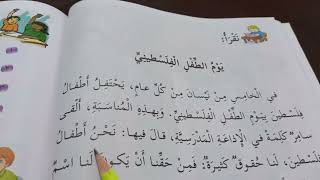 نَقْرَأُ:
يَوْمُ الطِّفْلِ الْفِلَسْطِينِيِّ
في الْخامِسِ مِنْ نَيْسانَ مِنْ كُلِّ عامٍ، يَحْتَفِلُ أَطْفالُ
فِلَسْطينَ بِيَوْمِ الطِّفْلِ الْفِلَسْطينِيِّ. وَبِهذِهِ الْمُناسَبَةِ، أَلْقى
سامِرٌ كَلِمَةً في الْإِذاعَةِ الْمَدْرَسِيَّةِ، قالَ فيها: نَحْنُ أَطْفالُ
فِلَسْطينَ، لَنا حُقوقٌ كَثيرَةٌ: فَمِنْ حَقِّنا أَنْ يَكونَ لَنا اسْمٌ